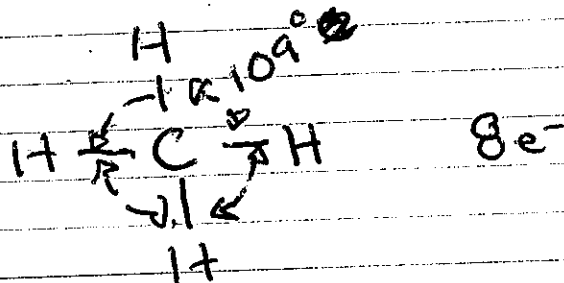 H
109°
H C H 8e⁻
H